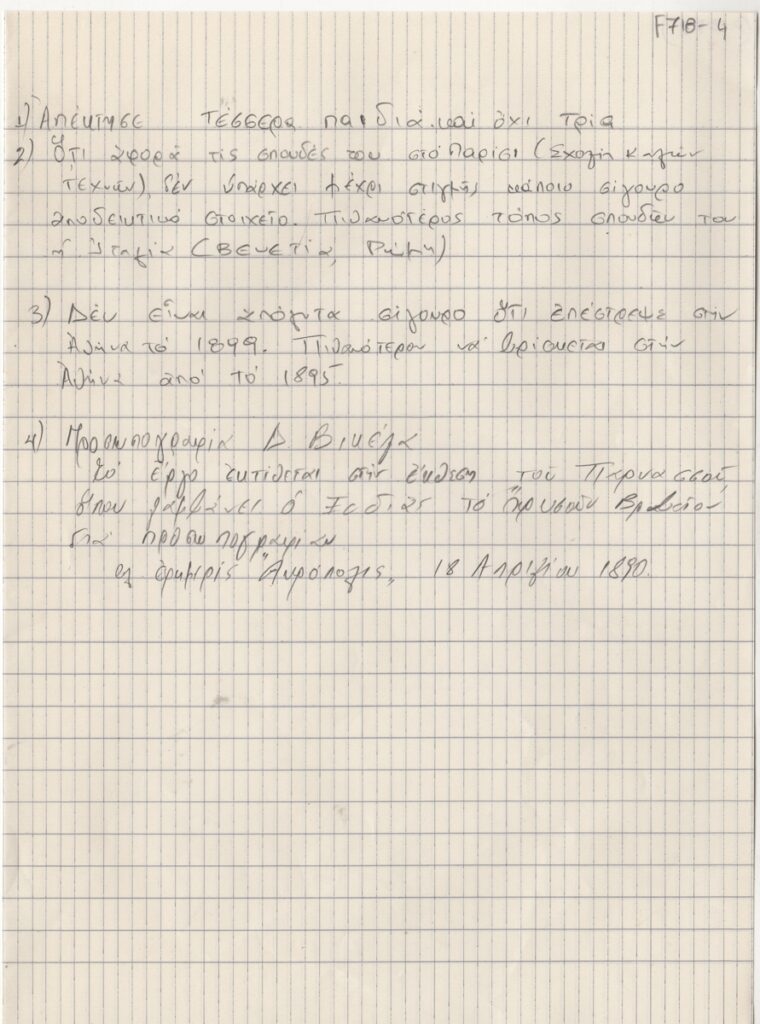 F718-4
1) Ἀπέκτησε τέσσερα παιδιά καί ὄχι τρία
2) Ὅτι ἀφορά τίς σπουδές του στό Παρίσι (Σχολή Καλών
Τεχνών), δέν ὑπάρχει μέχρι στιγμής κάποιο σίγουρο
ἀποδεικτικό στοιχείο. Πιθανοτέρος τόπος σπουδών του
ἡ Ἰταλία (Βενετία, Ρώμη)
3) Δέν εἶναι ἀπόλυτα σίγουρο ὅτι ἐπέστρεψε στήν
Ἀθήνα τό 1899. Πιθανότερον νά βρίσκεται στήν
Ἀθήνα ἀπό τό 1895.
4) Προσωπογραφία Δ. Βικέλα
Τό ἔργο ἐκτίθεται στήν ἔκθεση τοῦ Παρνασσού,
ὅπου λαμβάνει ὁ Ξυδιάς τό Χρυσοῦν Βραβεῖον
γιά προσωπογραφίαν
ἐφημερίς "Ἀκρόπολις", 18 Απριλίου 1890.